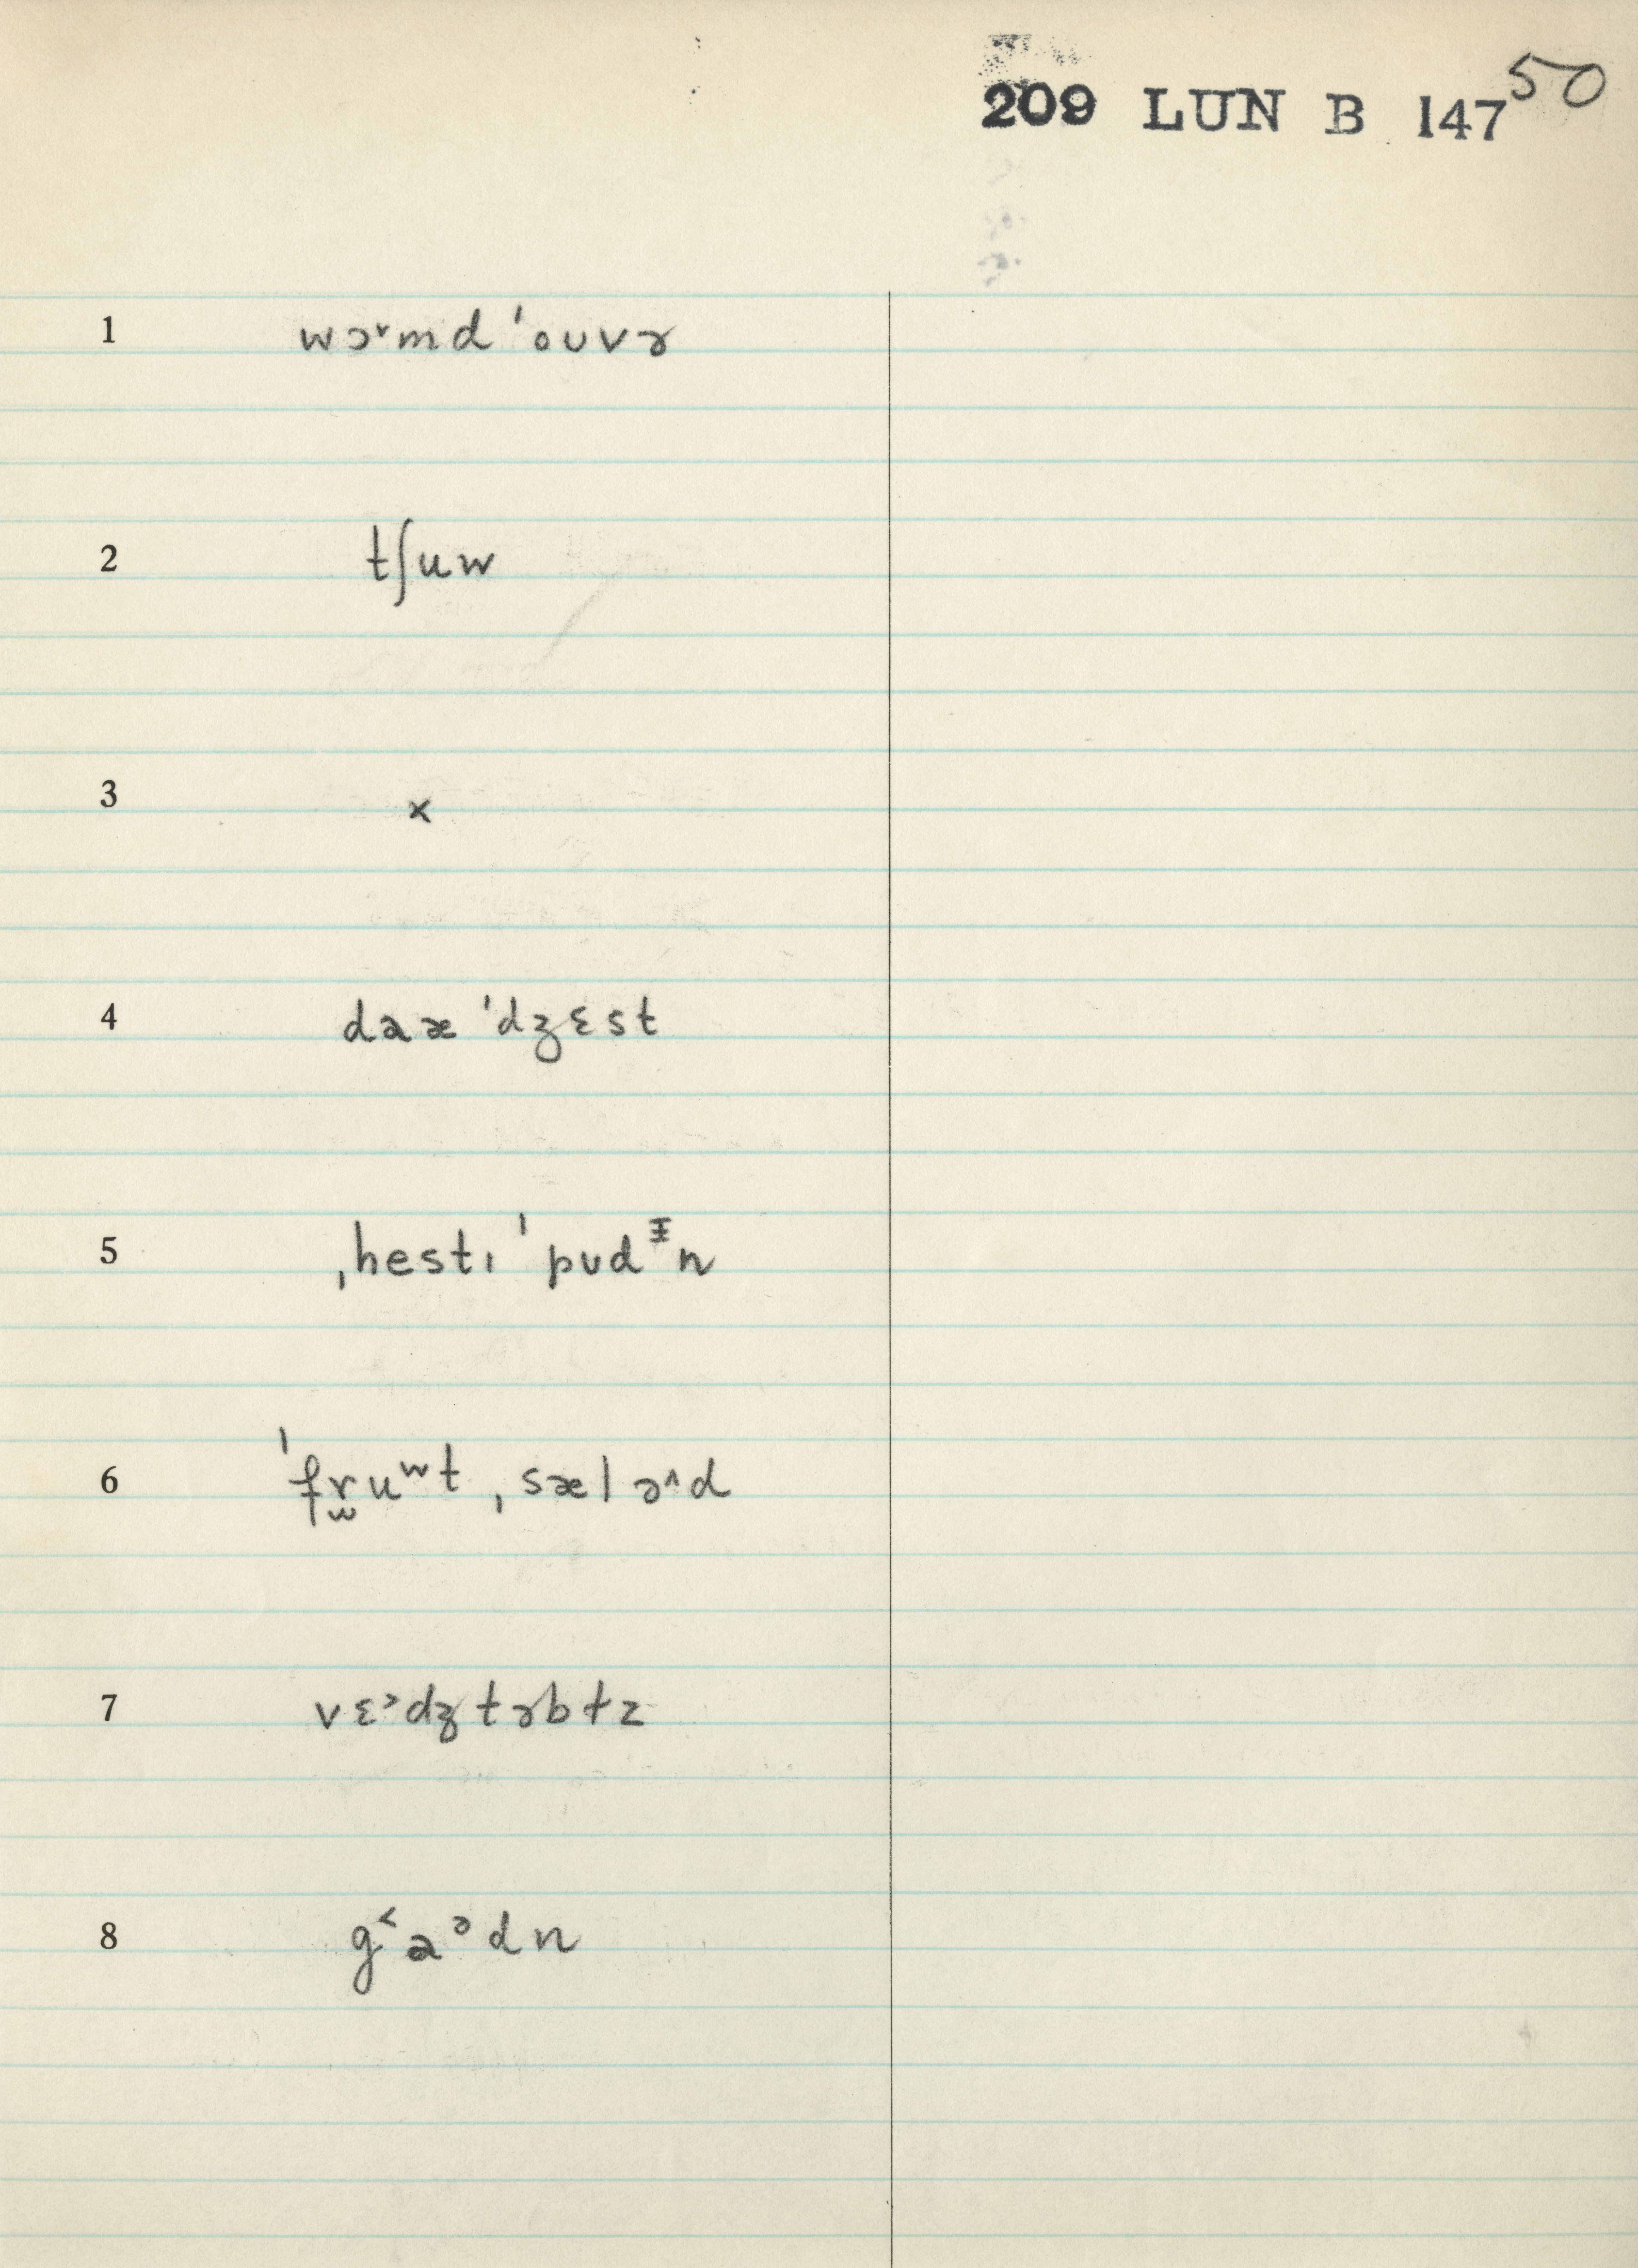 209 LUN B 147 50
1 wɔ˞md ˈoʊvɚ
2 tʃuw
3 ×
4 daæ ˈdʒɛst
5 ˌhestɪ ˈpʊdᵻn
6 ˈfr̫uʷt ˌsælə˄d
7 vɛ˒dʒtɚbɫz
8 g˂aᵊdn